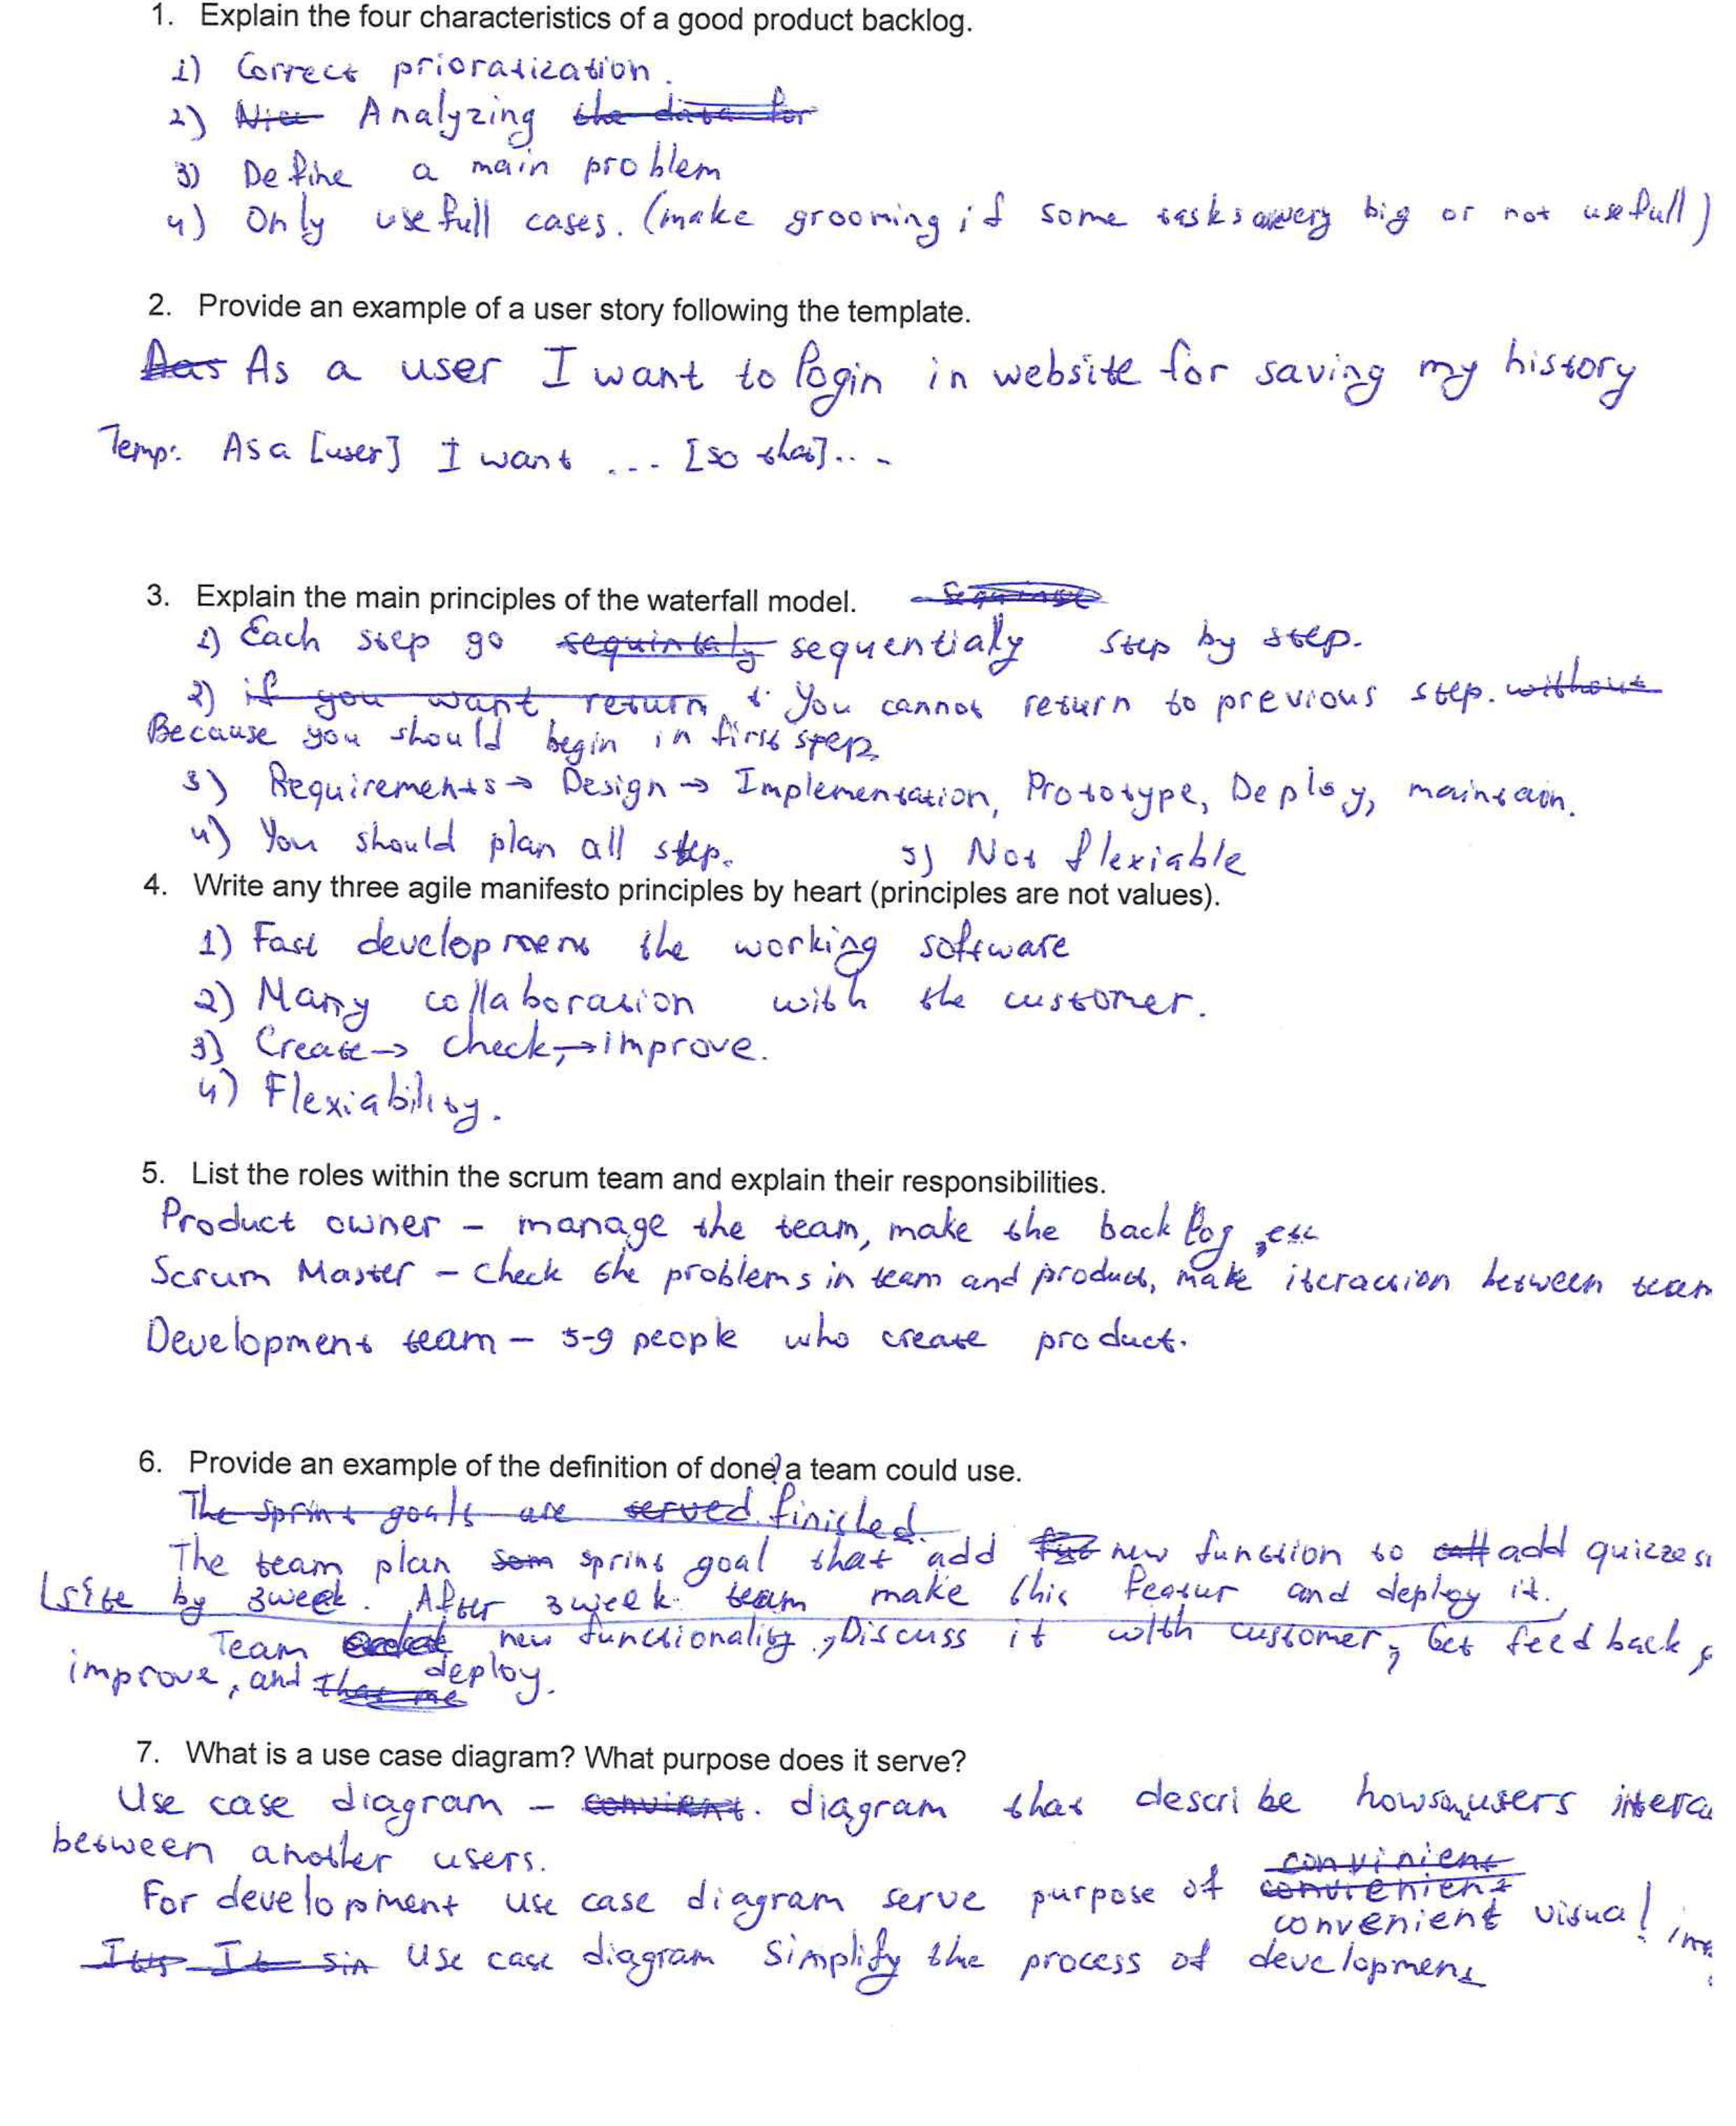 1. Explain the four characteristics of a good product backlog.
1) Correct prioratization.
2) Analyzing the data for
3) Define a main problem
4) Only usefull cases. (make grooming if some tasks very big or not usefull)
2. Provide an example of a user story following the template.
As a user I want to login in website for saving my history
Temp: As a [user] I want ... [so that]...
3. Explain the main principles of the waterfall model.
1) Each step go sequentialy step by step.
2) if you want return You cannot return to previous step. without
Because you should begin in first step.
3) Requirements → Design → Implementation, Prototype, Deploy, maintain.
4) You should plan all step. 5) Not flexiable
4. Write any three agile manifesto principles by heart (principles are not values).
1) Fast development the working software
2) Many collaboration with the customer.
3) Create → check, → improve.
4) Flexiability.
5. List the roles within the scrum team and explain their responsibilities.
Product owner - manage the team, make the back log, etc
Scrum Master - Check the problems in team and product, make iteraction between team
Development team - 5-9 people who create product.
6. Provide an example of the definition of done a team could use.
The sprint goals are served finished.
The team plan som sprint goal that add new function to add quizzes
site by 3 week. After 3 week team make this featur and deploy it.
Team new functionality, Discuss it with customer, Get feedback,
improve, and deploy.
7. What is a use case diagram? What purpose does it serve?
Use case diagram - diagram that describe how users
between another users.
convinient
For development use case diagram serve purpose of
convenient visual
It Use case diagram simplify the process of development